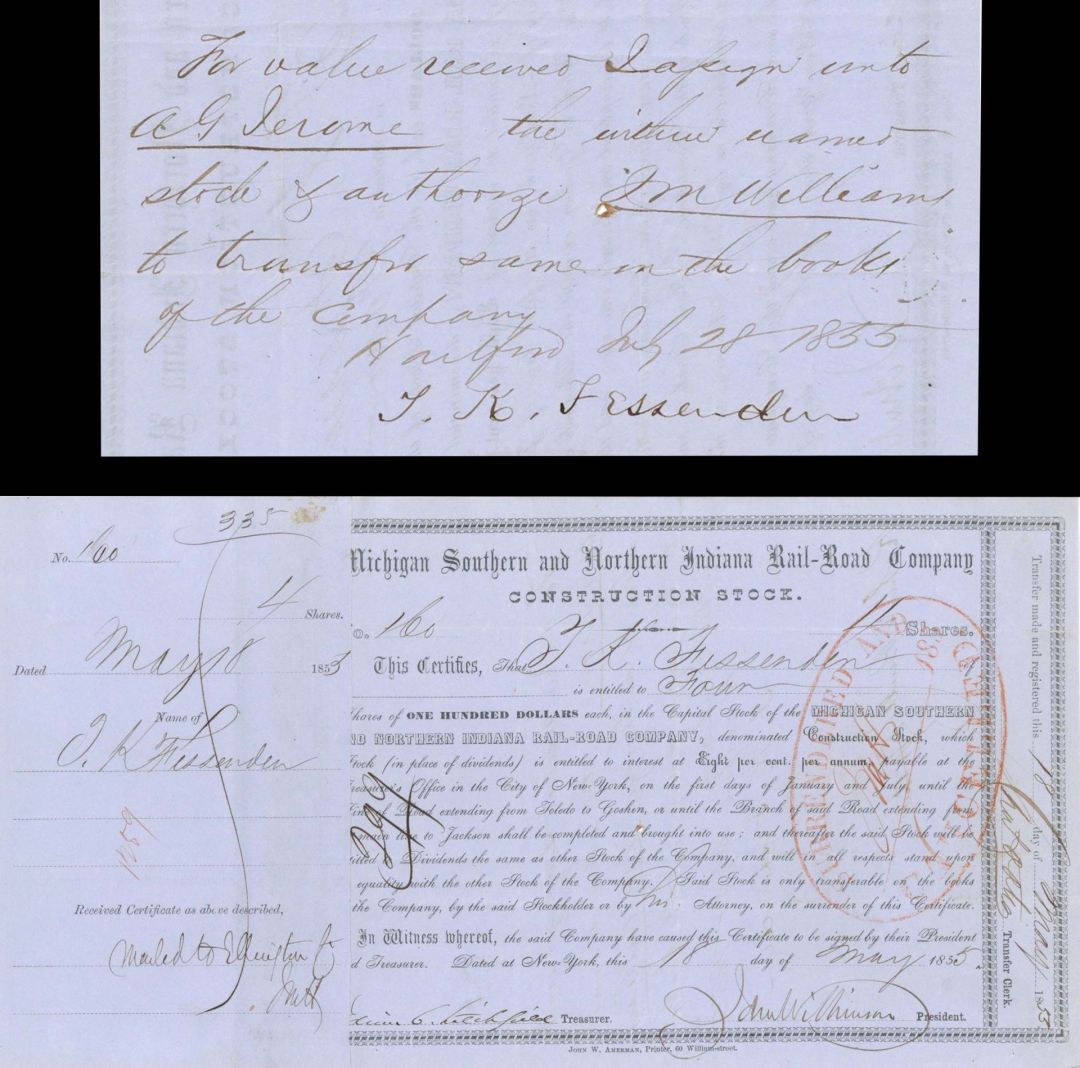 For value received I assign unto
A G Jerome the within named
stock & authorize J M Williams
to transfer same on the books
of the company
Hartford July 28 1855
T. K. Fessenden
335
No. 160
4 Shares.
Dated May 18 1855
Name of
T. K Fessenden
Received Certificate as above described,
Mailed to Ellington Ct
Michigan Southern and Northern Indiana Rail-Road Company
CONSTRUCTION STOCK.
No. 160 4 Shares.
This Certifies, That T. K. Fessenden of
is entitled to Four
Shares of ONE HUNDRED DOLLARS each, in the Capital Stock of the MICHIGAN SOUTHERN
ND NORTHERN INDIANA RAIL-ROAD COMPANY, denominated Construction Stock, which
Stock (in place of dividends) is entitled to interest at Eight per cent. per annum, payable at the
Treasurer's Office in the City of New-York, on the first days of January and July, until the
Road extending from Toledo to Goshen, or until the Branch of said Road extending from
main line to Jackson shall be completed and brought into use; and thereafter the said Stock will be
titled Dividends the same as other Stock of the Company, and will in all respects stand upon
equality with the other Stock of the Company. Said Stock is only transferable on the books
the Company, by the said Stockholder or by his Attorney, on the surrender of this Certificate.
In Witness whereof, the said Company have caused this Certificate to be signed by their President
d Treasurer. Dated at New-York, this 18 day of May 1855.
Treasurer. John Wilkinson President.
299
JOHN W. AMERMAN, Printer, 60 William-street.
Transfer made and registered this 18 day of May 1855
Transfer Clerk.